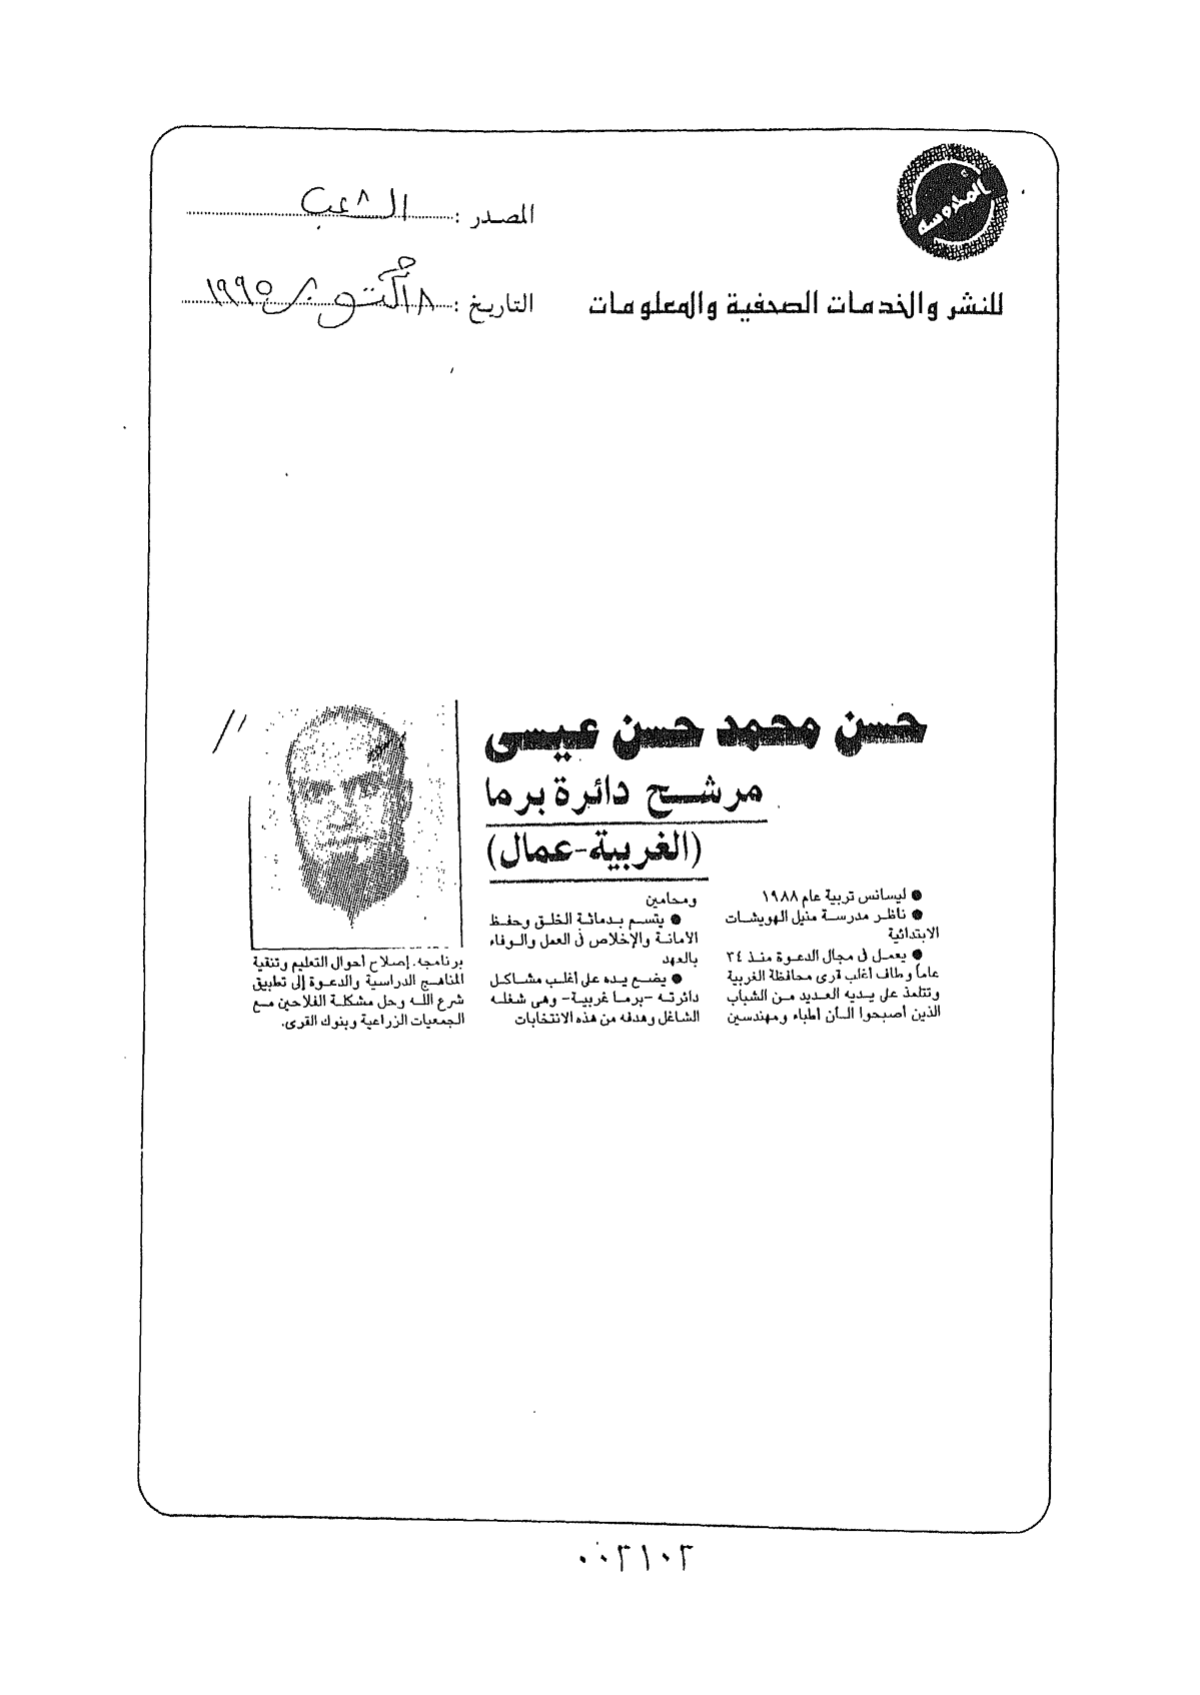 المصدر : الشعب
التاريخ : ١٨ أكتوبر ١٩٩٥
للنشر والخدمات الصحفية والمعلومات
حسن محمد حسن عيسى
مرشح دائرة برما
(الغربية-عمال)
● ليسانس تربية عام ١٩٨٨
● ناظر مدرسة منيل الهويشات
الابتدائية
● يعمل فى مجال الدعوة منذ ٣٤
عاماً وطاف أغلب قرى محافظة الغربية
وتتلمذ على يديه العديد من الشباب
الذين أصبحوا الآن أطباء ومهندسين
ومحامين
● يتسم بدماثة الخلق وحفظ
الأمانة والإخلاص فى العمل والوفاء
بالعهد
● يضع يده على أغلب مشاكل
دائرته -برما غربية- وهى شغله
الشاغل وهدفه من هذه الانتخابات
برنامجه. إصلاح أحوال التعليم وتنقية
المناهج الدراسية والدعوة إلى تطبيق
شرع الله وحل مشكلة الفلاحين مع
الجمعيات الزراعية وبنوك القرى.